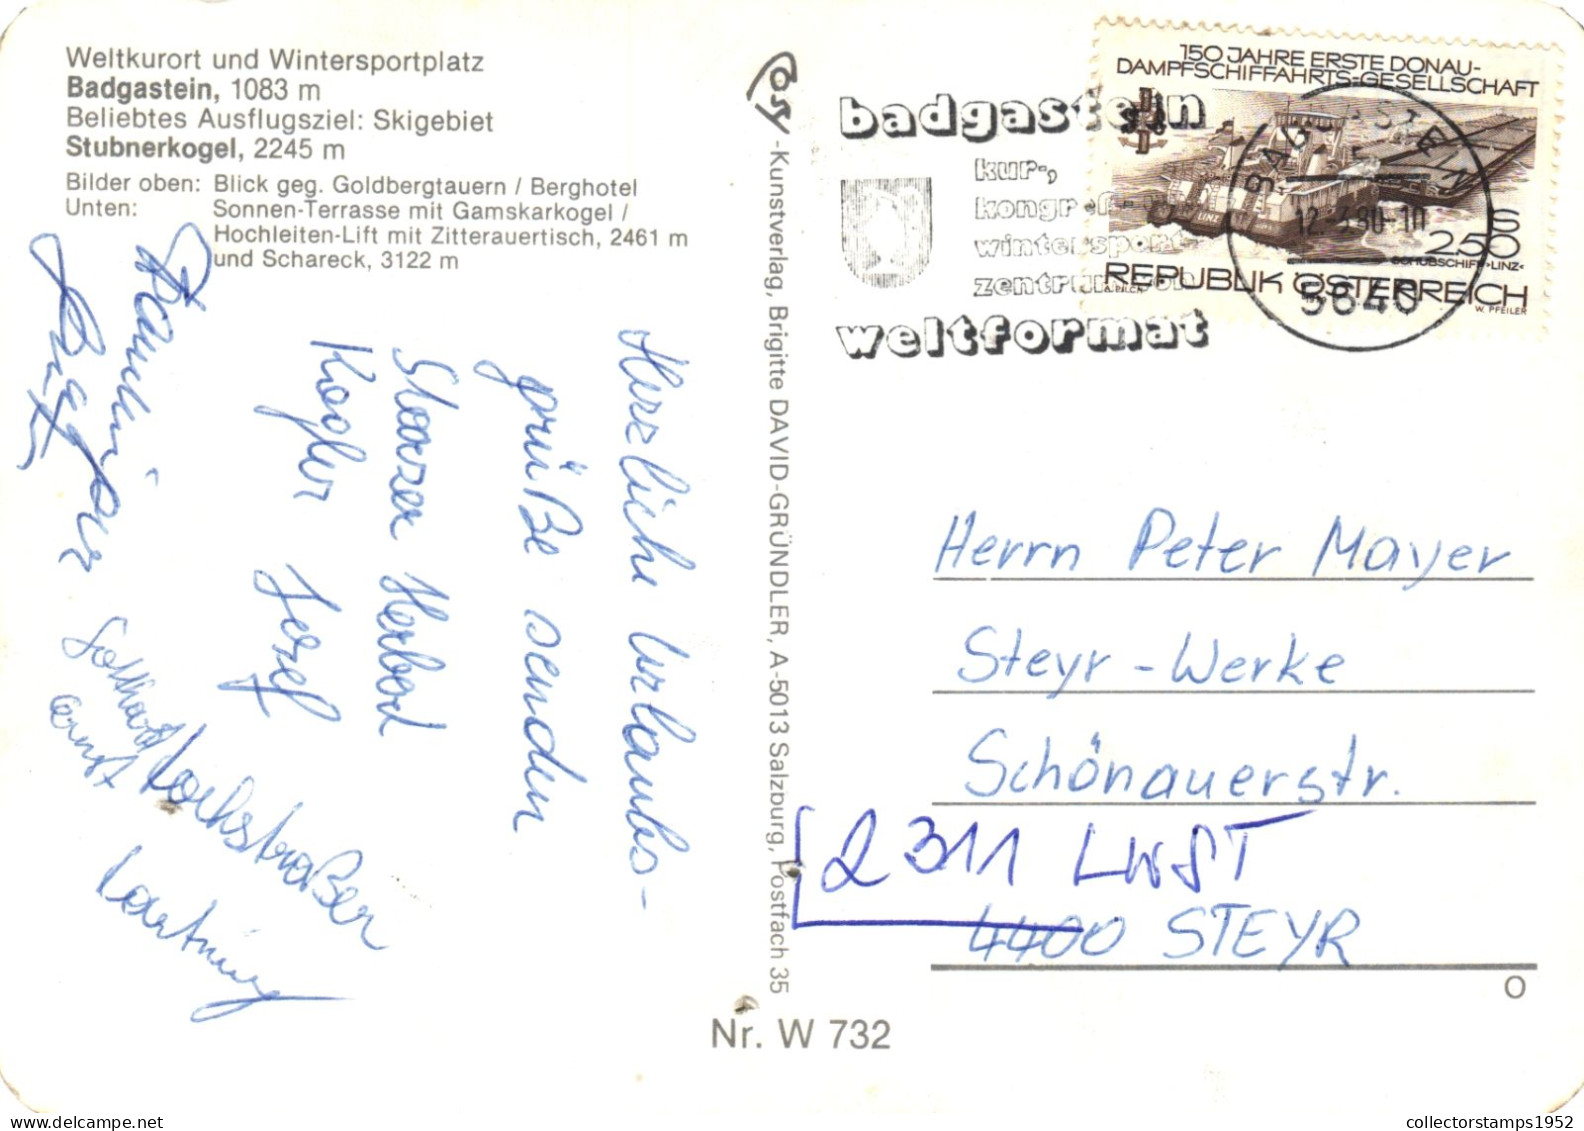 Weltkurort und Wintersportplatz
Badgastein, 1083 m
Beliebtes Ausflugsziel: Skigebiet
Stubnerkogel, 2245 m
Bilder oben: Blick geg. Goldbergtauern / Berghotel
Unten: Sonnen-Terrasse mit Gamskarkogel /
Hochleiten-Lift mit Zitterauertisch, 2461 m
und Schareck, 3122 m
Herzliche Urlaubs-
grüße senden
Herbod
Kogler Josef
Gotthard
Ernst
Hochstraßer
Hartwig
Cosy-Kunstverlag, Brigitte DAVID-GRÜNDLER, A-5013 Salzburg, Postfach 35
badgastein
kur-,
kongreß-
wintersport-
zentrum von
weltformat
150 JAHRE ERSTE DONAU-
DAMPFSCHIFFAHRTS-GESELLSCHAFT
LINZ
S
2.50
SCHUBSCHIFF »LINZ«
REPUBLIK ÖSTERREICH
W. PFEILER
BADGASTEIN
12.-3.80-10
5640
Herrn Peter Mayer
Steyr-Werke
Schönauerstr.
2311 LWST
4400 STEYR
O
Nr. W 732
collectorstamps1952